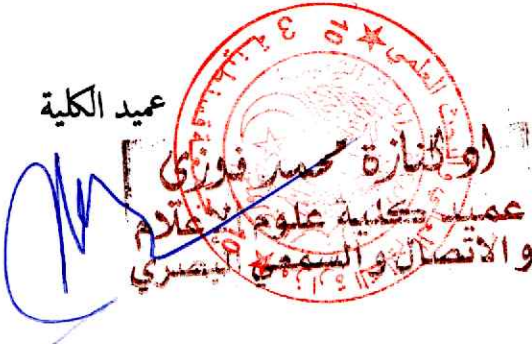 عميد الكلية
اد كنازة محمد فوزي
عميد كلية علوم الإعلام
والاتصال والسمعي البصري